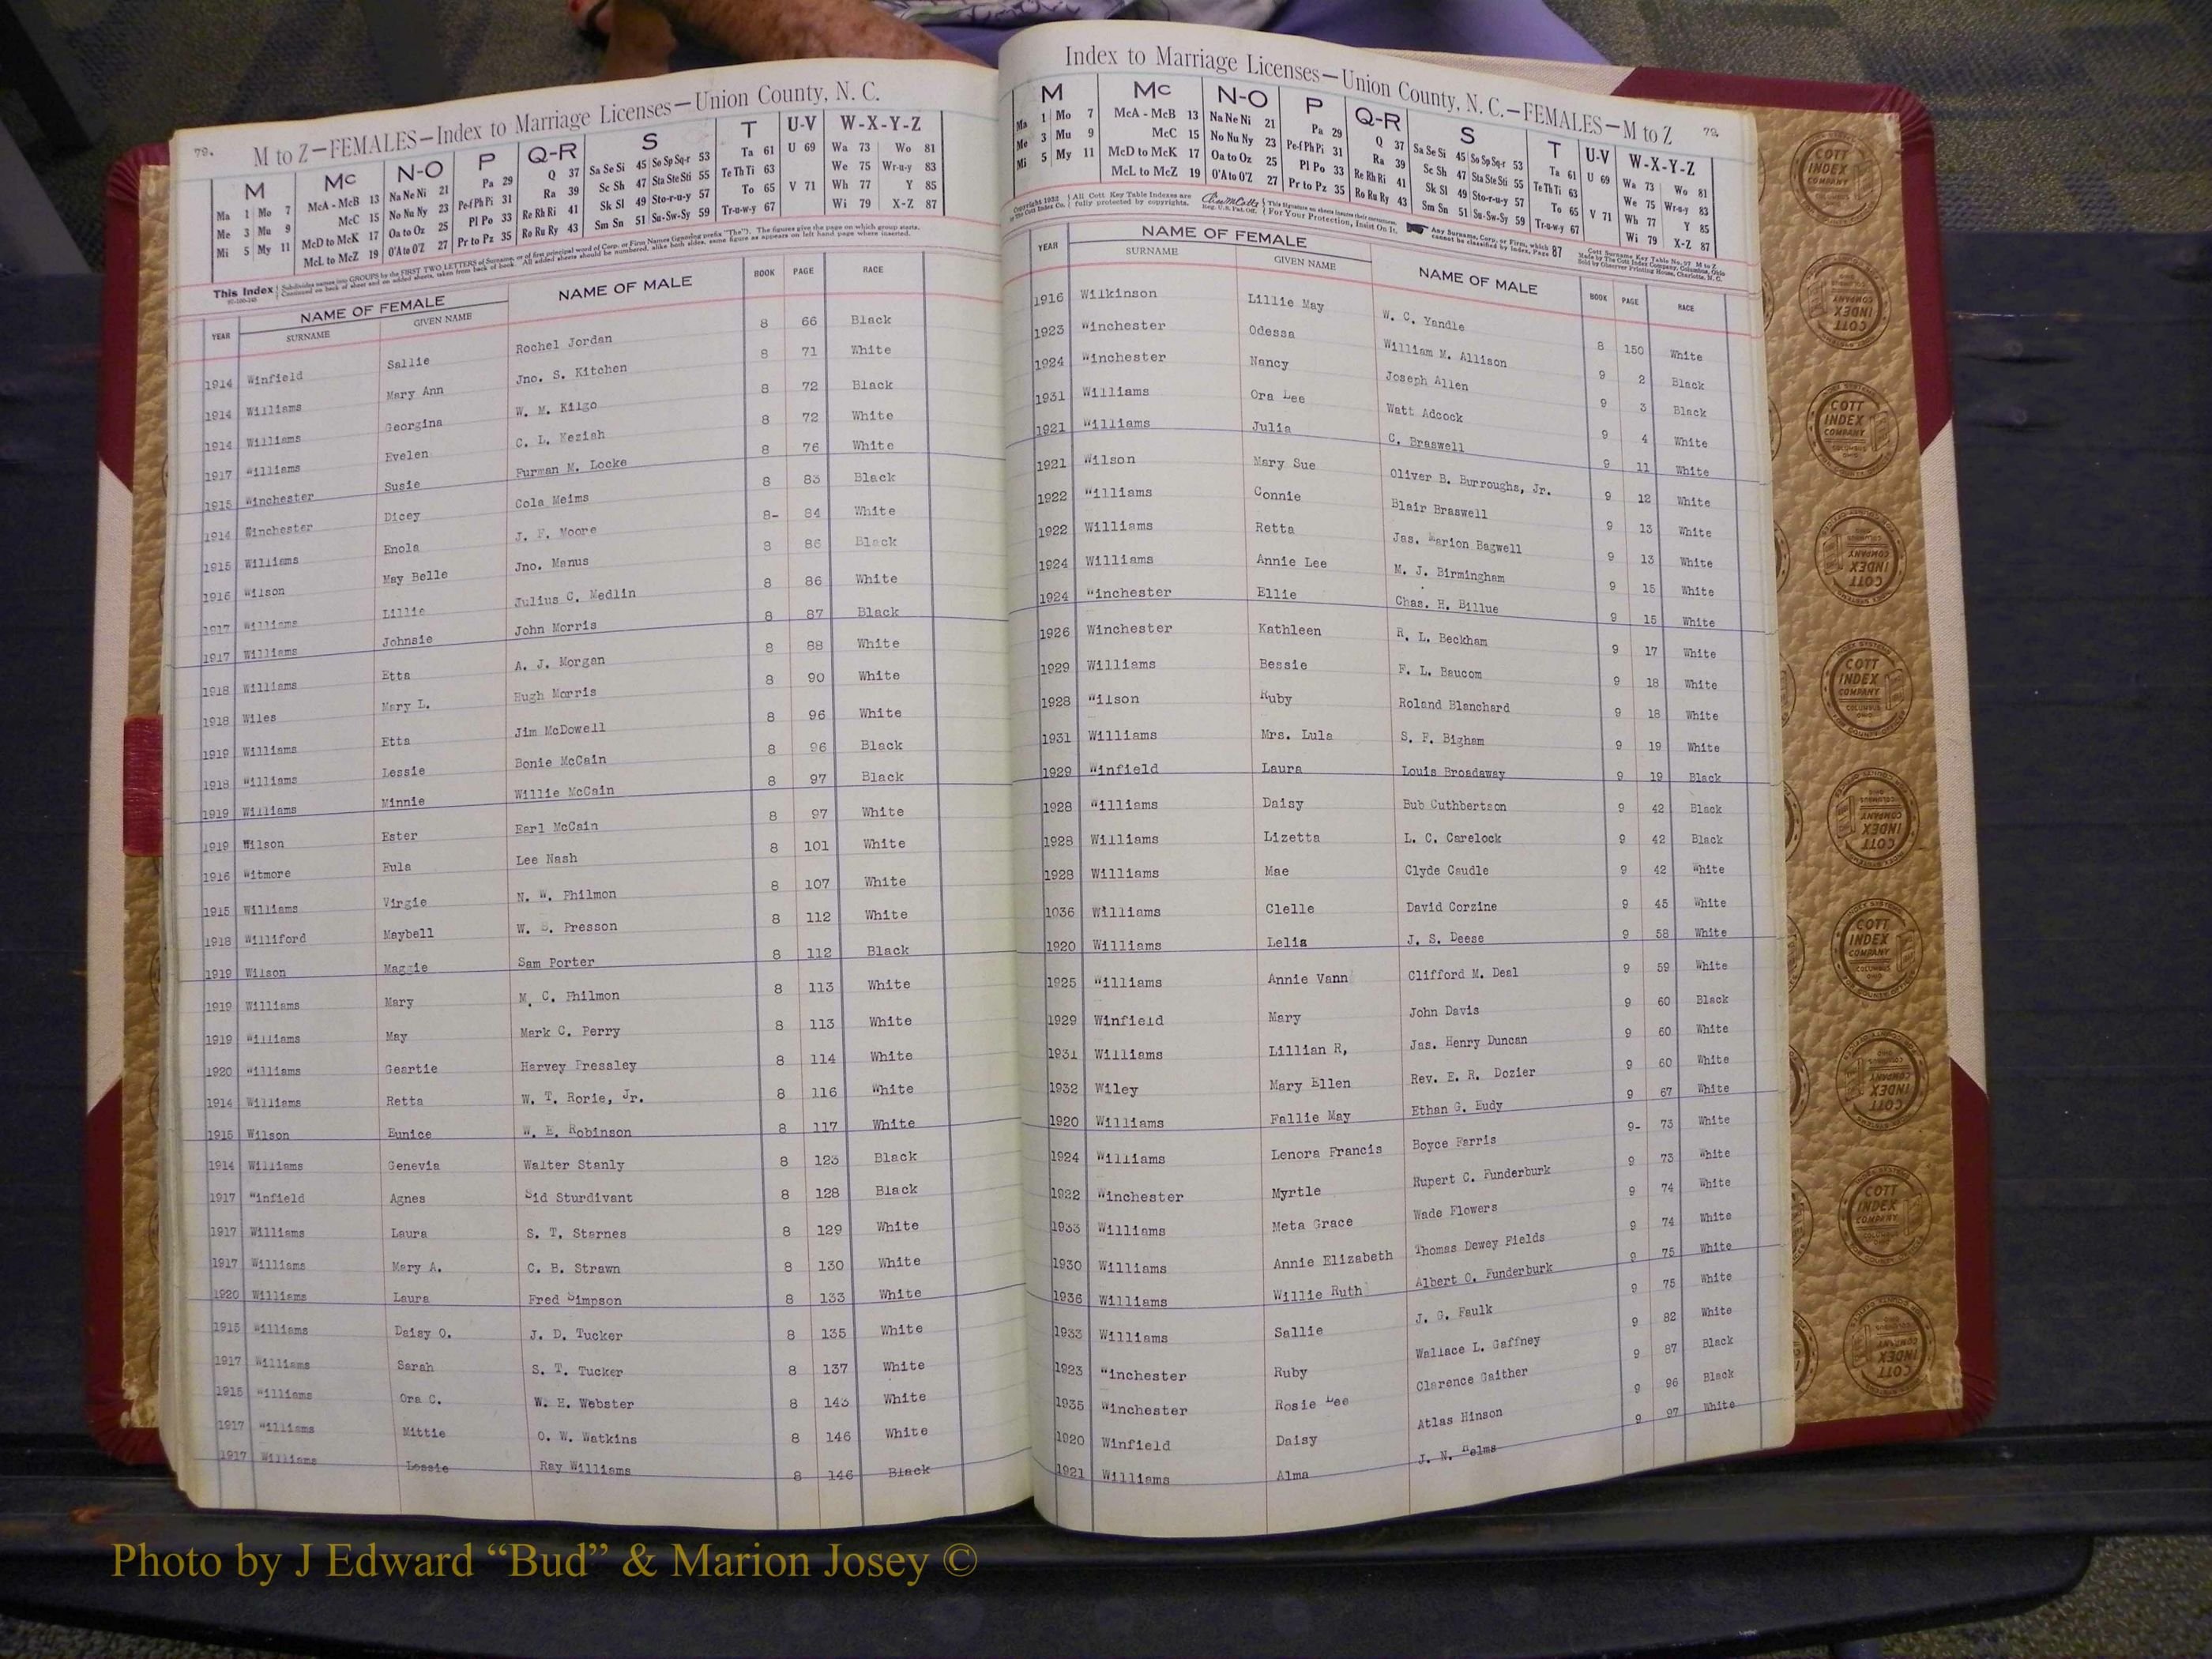 79.
M to Z—FEMALES—Index to Marriage Licenses—Union County, N. C.
M Mc N-O P Q-R S T U-V W-X-Y-Z
Ma 1 Mo 7 McA - McB 13 Na Ne Ni 21 Pa 29 Q 37 Sa Se Si 45 So Sp Sq-r 53 Ta 61 U 69 Wa 73 Wo 81
Me 3 Mu 9 McC 15 No Nu Ny 23 Pe-f Ph Pi 31 Ra 39 Sc Sh 47 Sta Ste Sti 55 Te Th Ti 63 We 75 Wr-u-y 83
Mi 5 My 11 McD to McK 17 Oa to Oz 25 Pl Po 33 Re Rh Ri 41 Sk Sl 49 Sto-r-u-y 57 To 65 V 71 Wh 77 Y 85
McL to McZ 19 O'A to O'Z 27 Pr to Pz 35 Ro Ru Ry 43 Sm Sn 51 Su-Sw-Sy 59 Tr-u-w-y 67 Wi 79 X-Z 87
This Index
YEAR NAME OF FEMALE NAME OF MALE BOOK PAGE RACE
SURNAME GIVEN NAME
1914 Winfield Sallie Rochel Jordan 8 66 Black
1914 Williams Mary Ann Jno. S. Kitchen 8 71 White
1914 Williams Georgina W. M. Kilgo 8 72 Black
1917 Williams Evelen C. L. Keziah 8 72 White
1915 Winchester Susie Furman M. Locke 8 76 White
1914 Winchester Dicey Cola Meims 8 83 Black
1915 Williams Enola J. F. Moore 8- 84 White
1916 Wilson May Belle Jno. Manus 8 86 Black
1917 Williams Lillie Julius C. Medlin 8 86 White
1917 Williams Johnsie John Morris 8 87 Black
1918 Williams Etta A. J. Morgan 8 88 White
1918 Wiles Mary L. Hugh Morris 8 90 White
1919 Williams Etta Jim McDowell 8 96 White
1918 Williams Lessie Bonie McCain 8 96 Black
1919 Williams Minnie Willie McCain 8 97 Black
1919 Wilson Ester Earl McCain 8 97 White
1916 Witmore Eula Lee Nash 8 101 White
1915 Williams Virgie N. W. Philmon 8 107 White
1918 Williford Maybell W. S. Presson 8 112 White
1919 Wilson Maggie Sam Porter 8 112 Black
1919 Williams Mary M. C. Philmon 8 113 White
1919 Williams May Mark C. Perry 8 113 White
1920 Williams Geartie Harvey Pressley 8 114 White
1914 Williams Retta W. T. Rorie, Jr. 8 116 White
1915 Wilson Eunice W. E. Robinson 8 117 White
1914 Williams Genevia Walter Stanly 8 123 Black
1917 Winfield Agnes Sid Sturdivant 8 128 Black
1917 Williams Laura S. T. Starnes 8 129 White
1917 Williams Mary A. C. B. Strawn 8 130 White
1920 Williams Laura Fred Simpson 8 133 White
1915 Williams Daisy O. J. D. Tucker 8 135 White
1917 Williams Sarah S. T. Tucker 8 137 White
1915 Williams Ora C. W. H. Webster 8 143 White
1917 Williams Mittie O. W. Watkins 8 146 White
1917 Williams Lossie Ray Williams 8 146 Black
Index to Marriage Licenses—Union County, N. C.—FEMALES—M to Z
79.
M Mc N-O P Q-R S T U-V W-X-Y-Z
Ma 1 Mo 7 McA - McB 13 Na Ne Ni 21 Pa 29 Q 37 Sa Se Si 45 So Sp Sq-r 53 Ta 61 U 69 Wa 73 Wo 81
Me 3 Mu 9 McC 15 No Nu Ny 23 Pe-f Ph Pi 31 Ra 39 Sc Sh 47 Sta Ste Sti 55 Te Th Ti 63 We 75 Wr-u-y 83
Mi 5 My 11 McD to McK 17 Oa to Oz 25 Pl Po 33 Re Rh Ri 41 Sk Sl 49 Sto-r-u-y 57 To 65 V 71 Wh 77 Y 85
McL to McZ 19 O'A to O'Z 27 Pr to Pz 35 Ro Ru Ry 43 Sm Sn 51 Su-Sw-Sy 59 Tr-u-w-y 67 Wi 79 X-Z 87
YEAR NAME OF FEMALE NAME OF MALE BOOK PAGE RACE
SURNAME GIVEN NAME
1916 Wilkinson Lillie May W. C. Yandle 8 150 White
1923 Winchester Odessa William M. Allison 9 2 Black
1924 Winchester Nancy Joseph Allen 9 3 Black
1931 Williams Ora Lee Watt Adcock 9 4 White
1921 Williams Julia C. Braswell 9 11 White
1921 Wilson Mary Sue Oliver B. Burroughs, Jr. 9 12 White
1922 Williams Connie Blair Braswell 9 13 White
1922 Williams Retta Jas. Marion Bagwell 9 13 White
1924 Williams Annie Lee M. J. Birmingham 9 15 White
1924 Winchester Ellie Chas. H. Billue 9 15 White
1926 Winchester Kathleen R. L. Beckham 9 17 White
1929 Williams Bessie F. L. Baucom 9 18 White
1928 Wilson Ruby Roland Blanchard 9 18 White
1931 Williams Mrs. Lula S. F. Bigham 9 19 White
1929 Winfield Laura Louis Broadaway 9 19 Black
1928 Williams Daisy Bub Cuthbertson 9 42 Black
1928 Williams Lizetta L. C. Carelock 9 42 Black
1928 Williams Mae Clyde Caudle 9 42 White
1036 Williams Clelle David Corzine 9 45 White
1920 Williams Lelia J. S. Deese 9 58 White
1925 Williams Annie Vann Clifford M. Deal 9 59 White
1929 Winfield Mary John Davis 9 60 Black
1931 Williams Lillian R, Jas. Henry Duncan 9 60 White
1932 Wiley Mary Ellen Rev. E. R. Dozier 9 60 White
1920 Williams Fallie May Ethan G. Eudy 9 67 White
1924 Williams Lenora Francis Boyce Farris 9- 73 White
1922 Winchester Myrtle Rupert C. Funderburk 9 73 White
1933 Williams Meta Grace Wade Flowers 9 74 White
1930 Williams Annie Elizabeth Thomas Dewey Fields 9 74 White
1936 Williams Willie Ruth Albert O. Funderburk 9 75 White
1933 Williams Sallie J. G. Faulk 9 75 White
1923 Winchester Ruby Wallace L. Gaffney 9 82 White
1935 Winchester Rosie Lee Clarence Gaither 9 87 Black
1920 Winfield Daisy Atlas Hinson 9 96 Black
1921 Williams Alma J. N. Helms 9 97 White
COTT INDEX COMPANY
Photo by J Edward “Bud” & Marion Josey ©